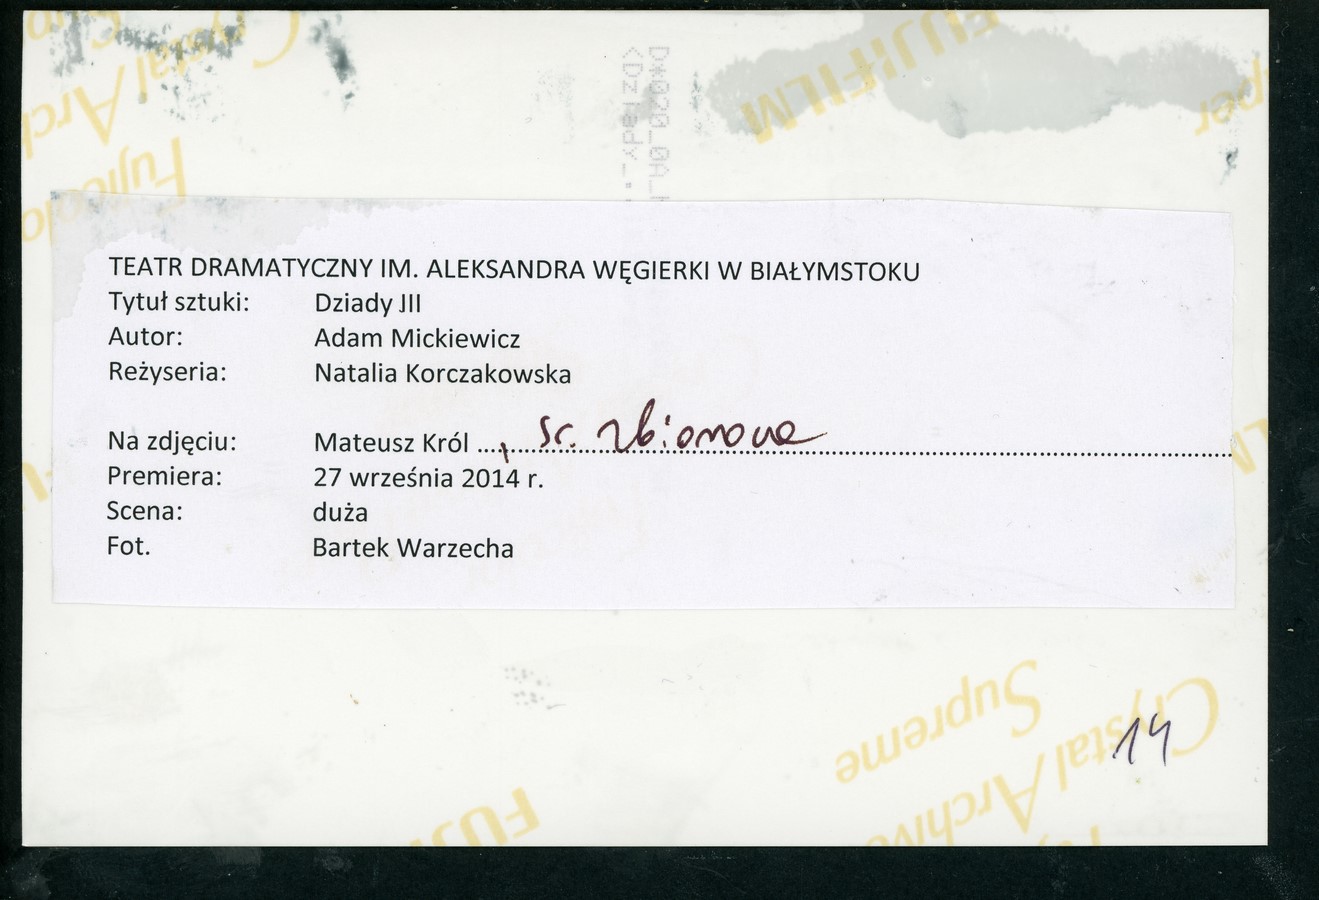 Crystal Archive
Supreme
Fujicolo
FUJIFILM
per
D*020_0A_
<Dziady_*
TEATR DRAMATYCZNY IM. ALEKSANDRA WĘGIERKI W BIAŁYMSTOKU
Tytuł sztuki: Dziady III
Autor: Adam Mickiewicz
Reżyseria: Natalia Korczakowska
Na zdjęciu: Mateusz Król ...,... sc. zbiorowa
Premiera: 27 września 2014 r.
Scena: duża
Fot. Bartek Warzecha
Crystal Archive
Supreme
14
FUJI